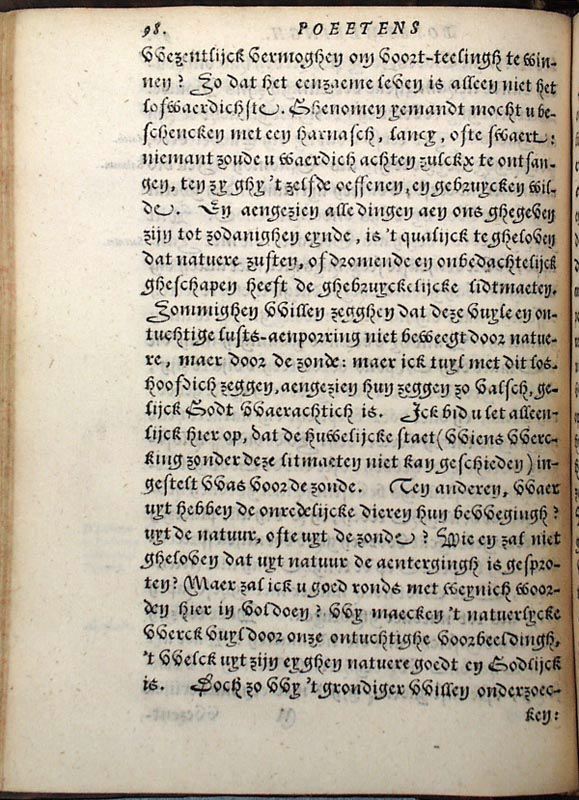 98. POEETENS
VVezentlijck vermoghen om voort-teelingh te win-
nen? Zo dat het eenzaeme leven is alleen niet het
lofwaerdichste. Ghenomen yemandt mocht u be-
schencken met een harnasch, lancy, ofte swaert:
niemant zoude u waerdich achten zulckx te ontfan-
gen, ten zy ghy 't zelfde oeffenen, en gebruycken wil-
de. En aengezien alle dingen aen ons ghegeven
zijn tot zodanighen eynde, is 't qualijck te gheloven
dat natuere zuften, of dromende en onbedachtelijck
gheschapen heeft de ghebruyckelijcke lidtmaeten.
Zommighen VVillen zegghen dat deze vuyle en on-
tuchtige lusts-aenporring niet beweegt door natue-
re, maer door de zonde: maer ick tuyl met dit los-
hoofdich zeggen, aengezien hun zeggen zo valsch, ge-
lijck Godt VVaerachtich is. Ick bid u let alleen-
lijck hier op, dat de huwelijcke staet (VViens VVerc-
king zonder deze litmaeten niet kan geschieden) in-
gestelt VVas voor de zonde. Ten anderen, VVaer
uyt hebben de onredelijcke dieren hun beVVegingh?
uyt de natuur, ofte uyt de zonde? Wie en zal niet
gheloven dat uyt natuur de aentergingh is gespro-
ten? Maer zal ick u goed ronds met weynich woor-
den hier in voldoen? VVy maecken 't natuerlycke
VVerck vuyl door onze ontuchtighe voorbeeldingh,
't VVelck uyt zijn eyghen natuere goedt en Godlijck
is. Doch zo VVy 't grondiger VVillen onderzoec-
ken: